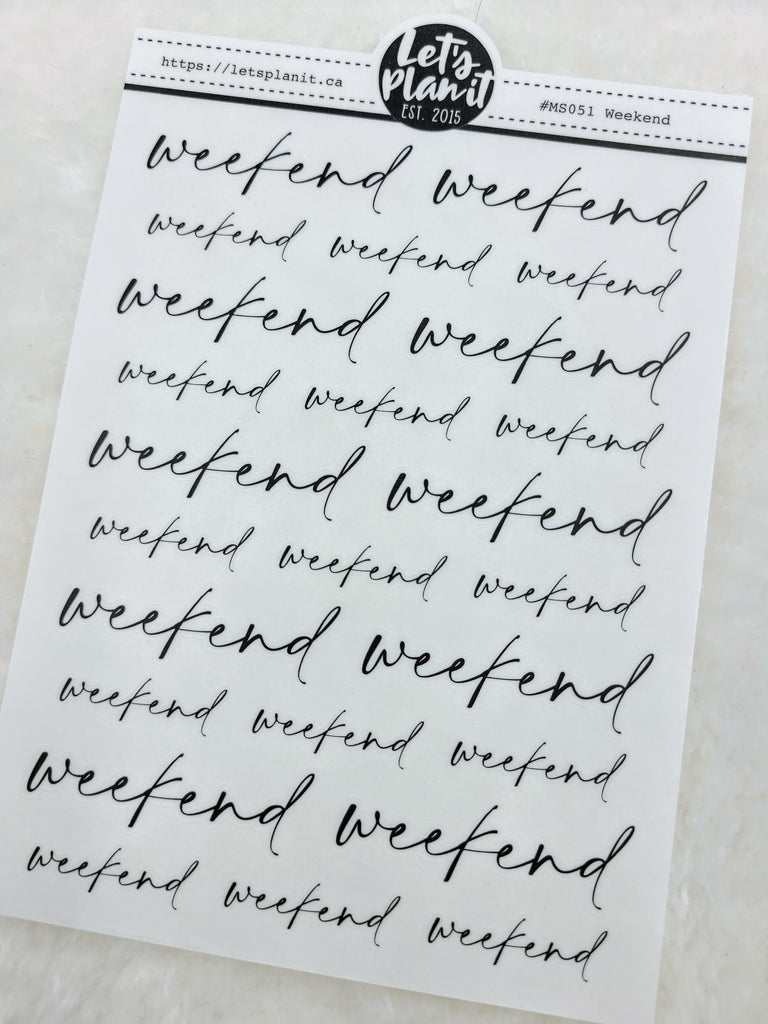 https://letsplanit.ca
Let's
Plan it
EST. 2015
#MS051 Weekend
weekend weekend
weekend weekend weekend
weekend weekend
weekend weekend weekend
weekend weekend
weekend weekend weekend
weekend weekend
weekend weekend weekend
weekend weekend
weekend weekend weekend